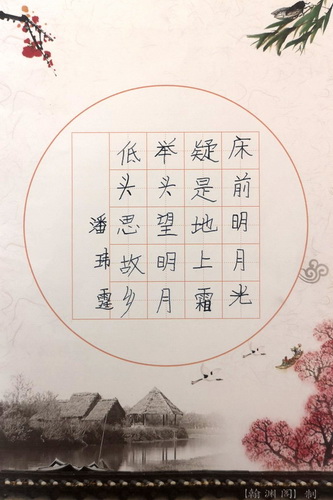 床前明月光
疑是地上霜
举头望明月
低头思故乡
潘玮霆
【翰渊阁】制